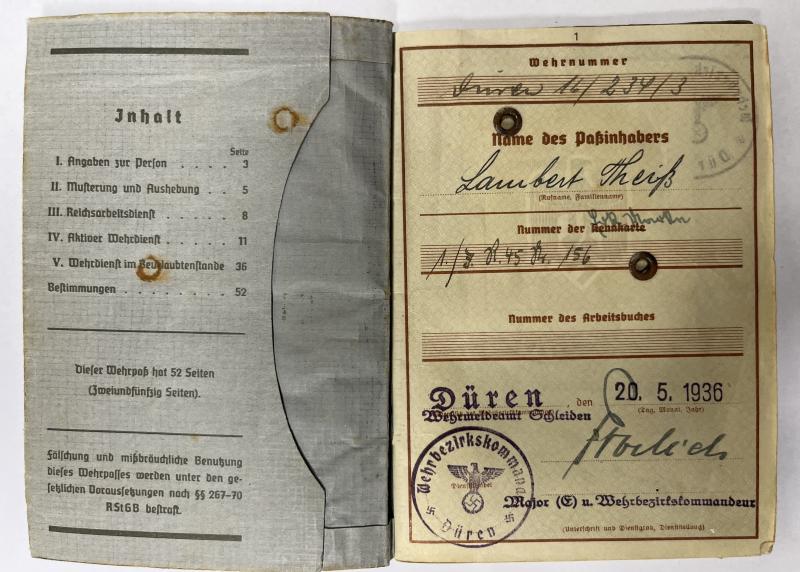 Inhalt
Seite
I. Angaben zur Person . . . . 3
II. Musterung und Aushebung . . 5
III. Reichsarbeitsdienst . . . . . 8
IV. Aktiver Wehrdienst . . . . . 11
V. Wehrdienst im Beurlaubtenstande 36
Bestimmungen . . . . . . . . 52
Dieser Wehrpaß hat 52 Seiten
(Zweiundfünfzig Seiten).
Fälschung und mißbräuchliche Benutzung
dieses Wehrpasses werden unter den ge-
setzlichen Voraussetzungen nach §§ 267-70
RStGB bestraft.
1
Wehrnummer
Düren 16/234/3
Name des Paßinhabers
Lambert Theiß
(Rufname, Familienname)
Nummer der Kennkarte
1./J. R. 45 Nr. 156
Nummer des Arbeitsbuches
Düren den 20. 5. 1936
Wehrmeldeamt Schleiden (Tag, Monat, Jahr)
Wehrbezirkskommando
Düren
Major (E) u. Wehrbezirkskommandeur
(Unterschrift und Dienstgrad, Dienststellung)